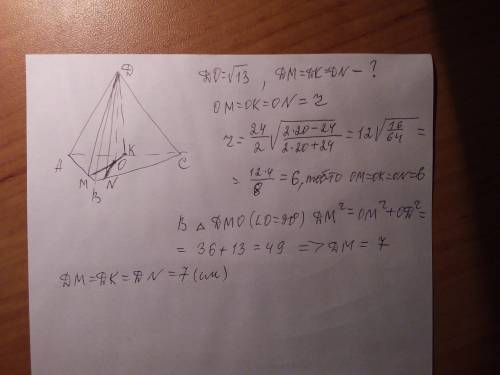 D
DO=√13 , DM=DK=DN – ?
OM=OK=ON = r
r = 24/2 √((2·20−24)/(2·20+24)) = 12√(16/64) =
= 12·4/8 = 6, тобто OM=OK=ON=6
A
K
O
C
M
B
N
В △ DMO (∠O=90) DM² = OM² + OD² =
= 36+13 = 49 => DM = 7
DM = DK = DN = 7 (см)